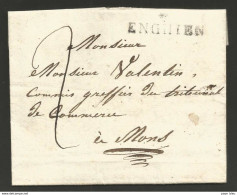 ENGHIEN
2
Monsieur
Monsieur Valentin,
Commis greffier du tribunal
de Commerce
à Mons